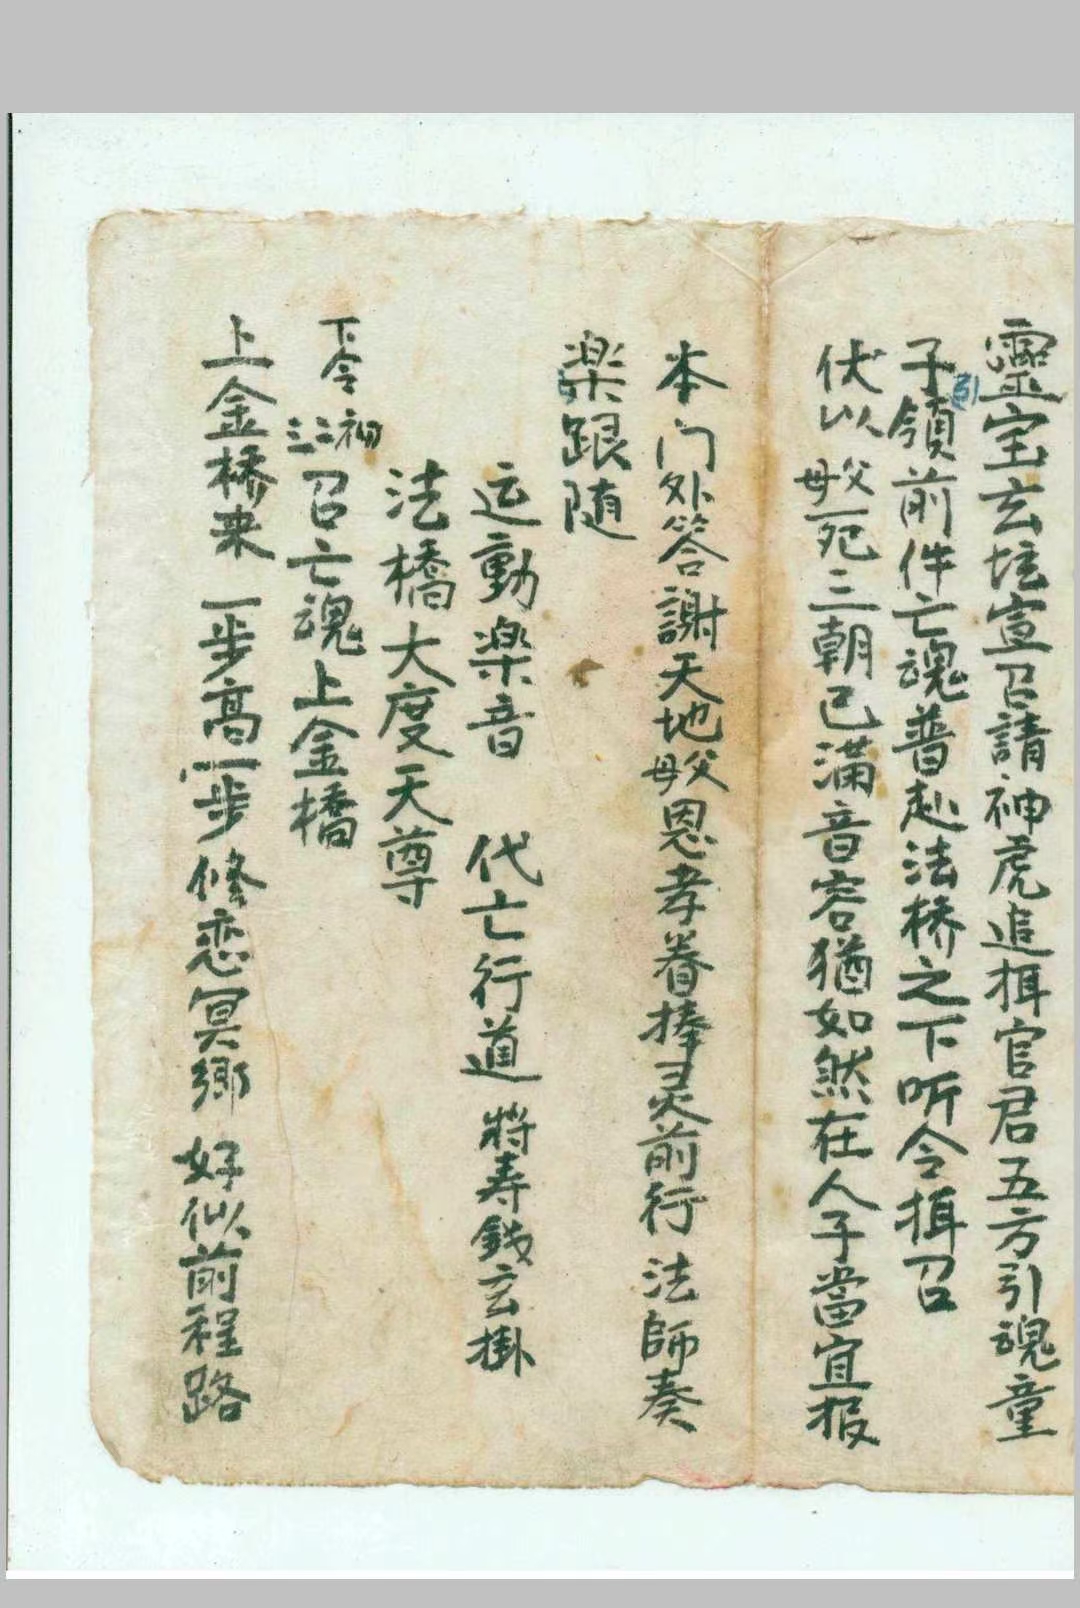 靈宝玄坛宣召請神虎追摂官君五方引魂童
子引領前件亡魂普赴法桥之下听令摂召
伏以父母死三朝已滿音容猶如然在人子當宜报
本门外答謝天地父母恩孝眷捧灵前行法師奏
楽跟随
运動楽音 代亡行道 将寿錢玄掛
法橋大度天尊
下令 初二三召亡魂上金橋
上金桥来 一步高一步 修恋冥鄉 好似前程路